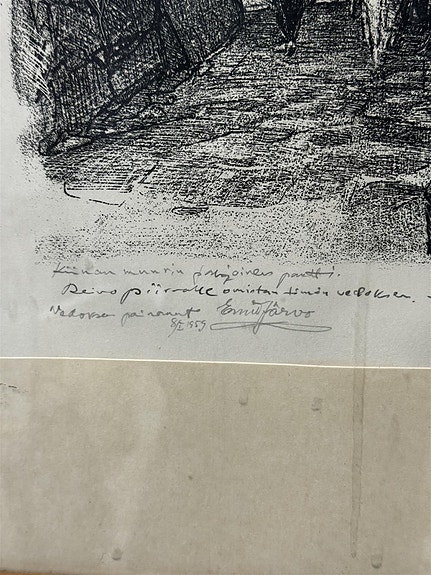 Kiinan muurin pohjoinen portti.
Reino piirsi omistan tämän vedoksen.
Vedoksen painanut Emil Järvo
8/I 1959